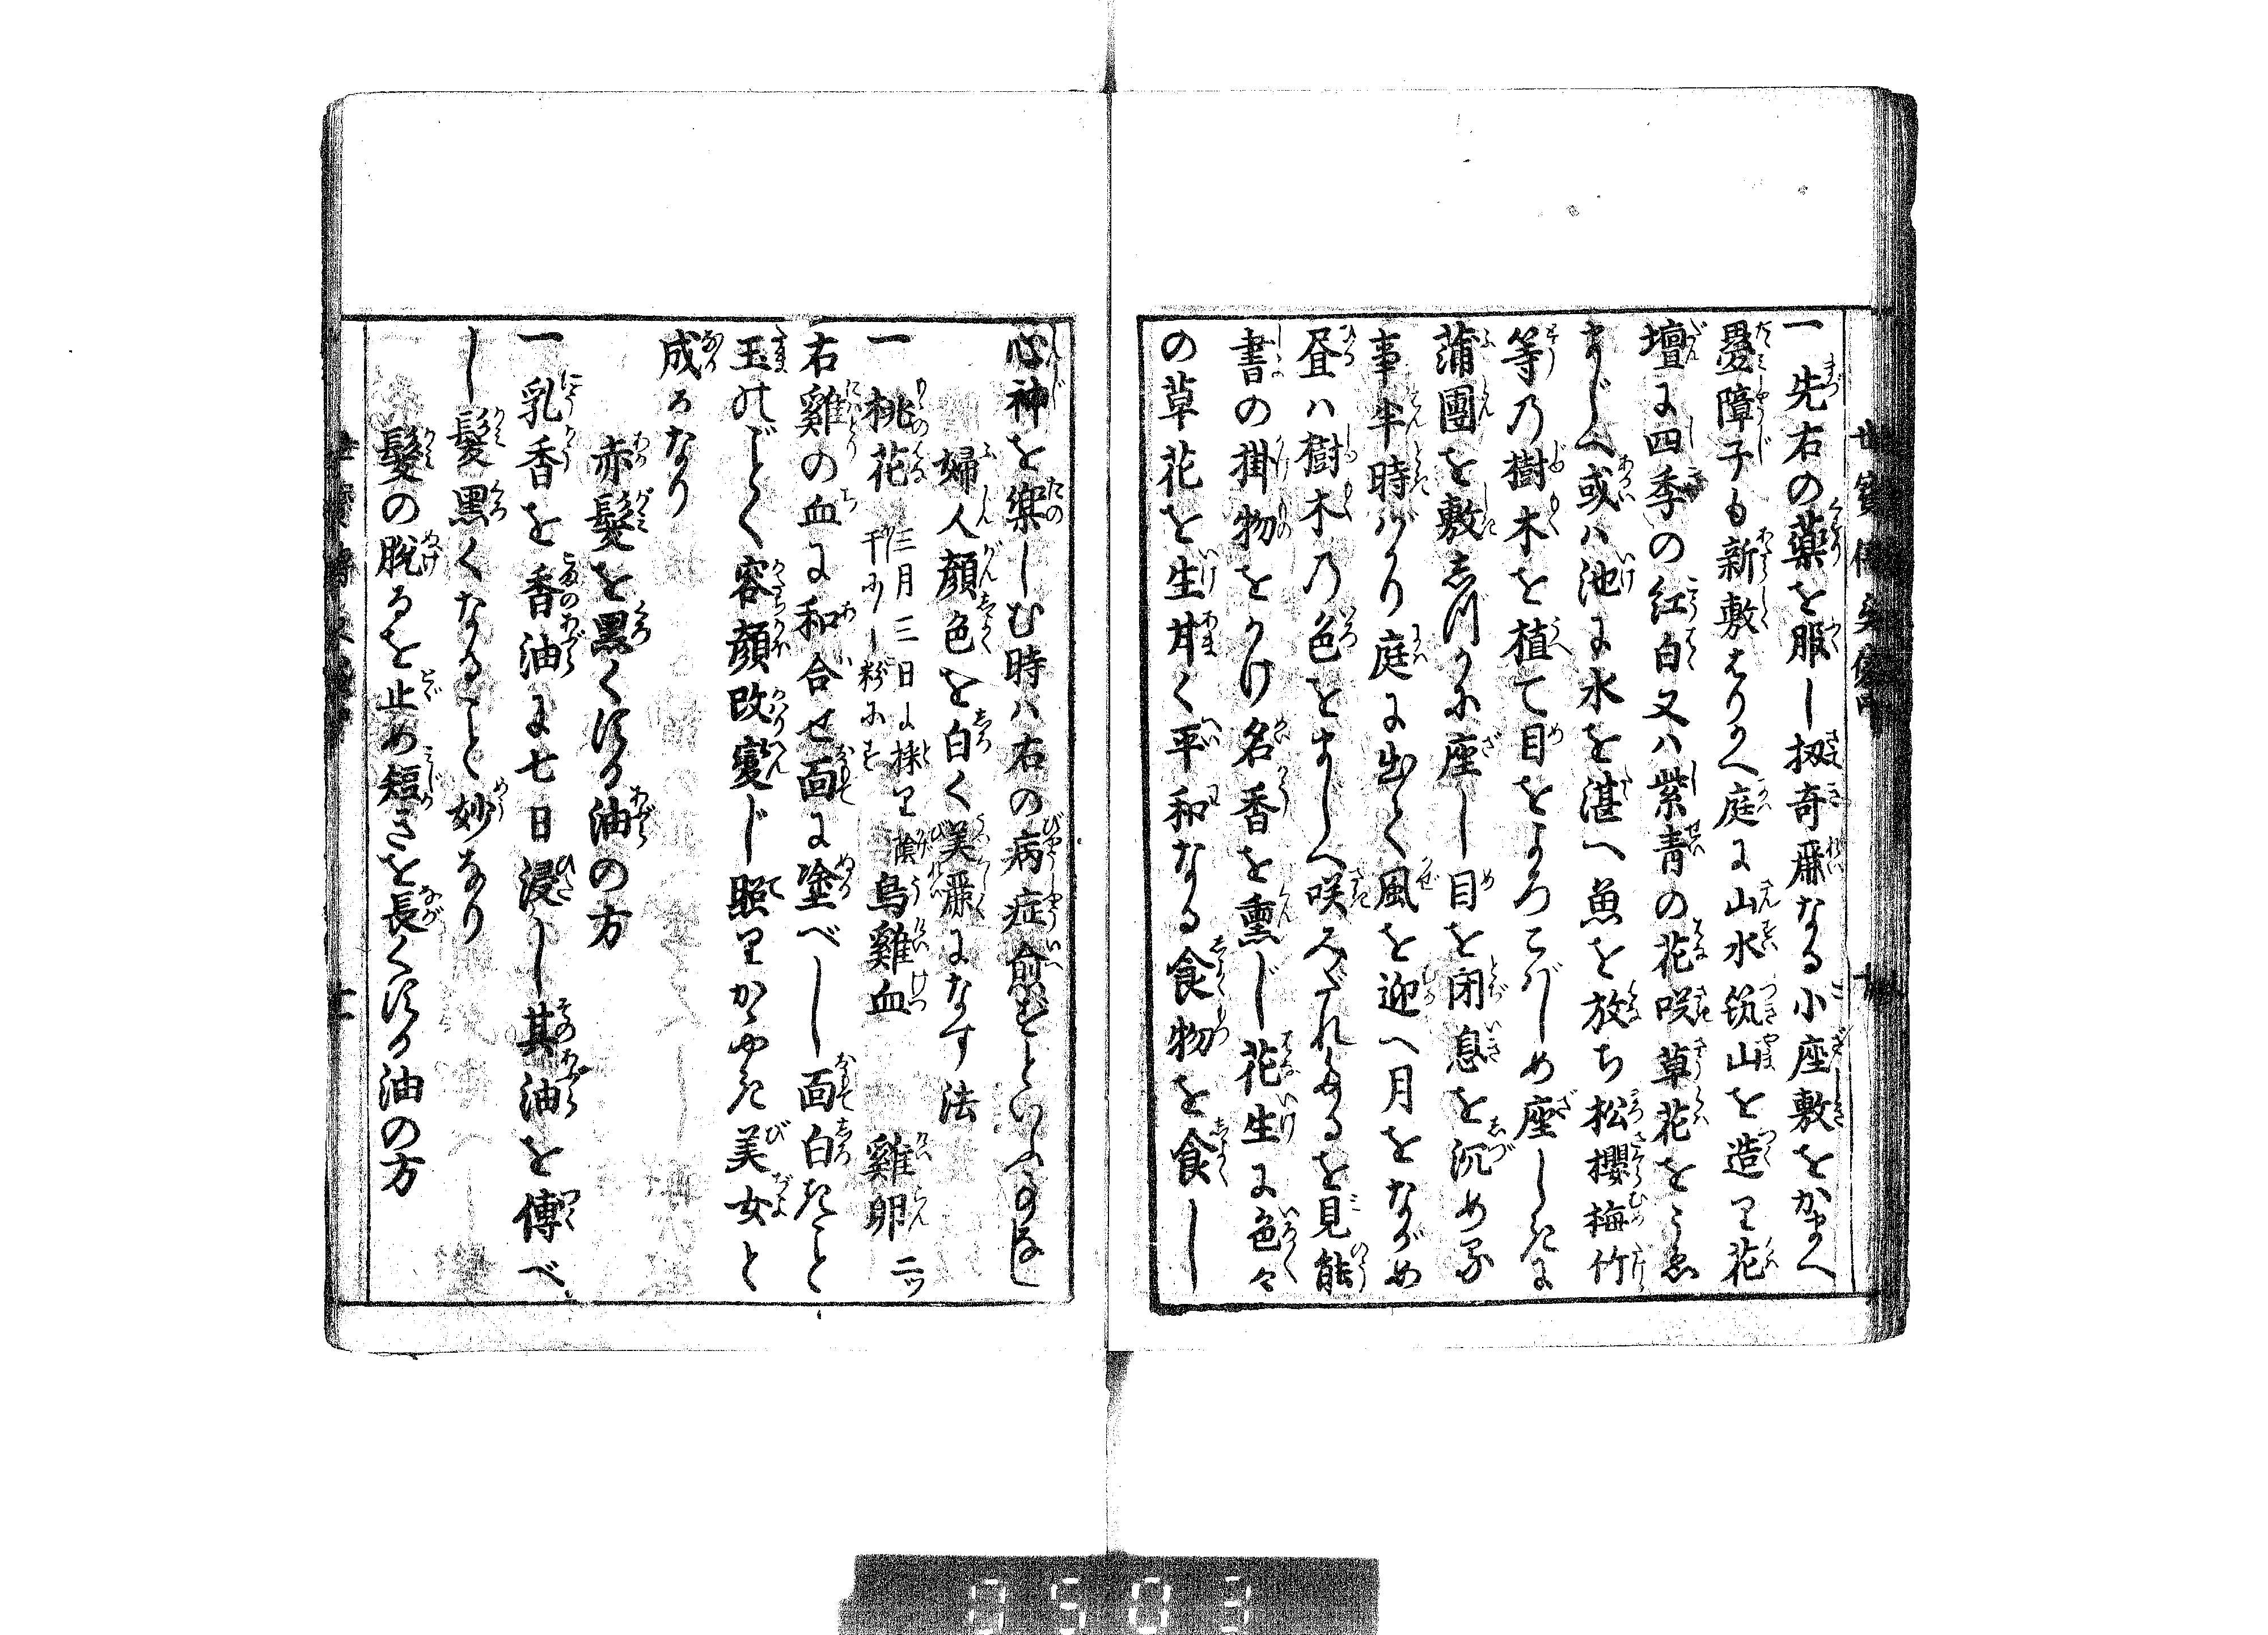 一先右の薬を服し扨奇麗なる小座敷をかまへ
畳障子も新敷はりかへ庭に山水筑山を造り花
壇に四季の紅白又ハ紫青の花咲草花をうゑ
まじへ或ハ池に水を湛へ魚を放ち松櫻梅竹
等乃樹木を植て目をよろこばしめ座しきに
蒲團を敷志川かに座し目を閉息を沉め
事半時ばかり庭に出て風を迎へ月をながめ
昼ハ樹木乃色をまじへ咲みだれたるを見能
書の掛物をかけ名香を熏じ花生に色々
の草花を生甘く平和なる食物を食し
心神を楽しむ時ハ右の病症愈ずといふ事なし
婦人顔色を白く美麗になす法
一桃花 三月三日に採り蔭干にし粉にす 烏雞血 雞卵 二ツ
右雞の血に和合せ面に塗べし面白きこと
玉のごとく容顔改變じ照りかゝやき美女と
成るなり
赤髮を黒くする油の方
一乳香を香油に七日浸し其油を傅べ
し髮黒くなること妙なり
髮の脱るを止め短きを長くする油の方